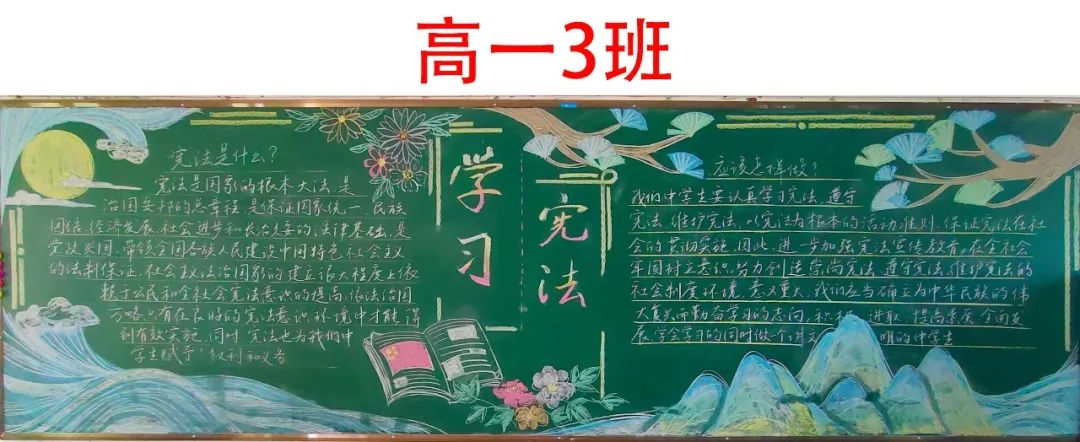 高一3班
宪法是什么？
宪法是国家的根本大法,是
治国安邦的总章程,是保证国家统一、民族
团结、经济发展、社会进步和长治久安的法律基础,是
党政兴国、带领全国各族人民建设中国特色社会主义
的法制保证,社会主义法治国家的建立很大程度上依
赖于公民和全社会宪法意识的提高,依法治国
方略只有在良好的宪法意识环境中才能得
到有效实施,同时宪法也为我们中
学生赋予权利和义务
学习
宪法
应该怎样做？
我们中学生要认真学习宪法、遵守
宪法、维护宪法,以宪法为根本的活动准则,保证宪法在社
会的贯彻实施,因此,进一步加强宪法宣传教育,在全社会
牢固树立意识,努力创造崇尚宪法、遵守宪法、维护宪法的
社会制度环境,意义重大,我们应当确立为中华民族的伟
大复兴而勤奋学习的志向,积极进取,提高素质,全面发
展,学会学习的同时做个讲文明的中学生